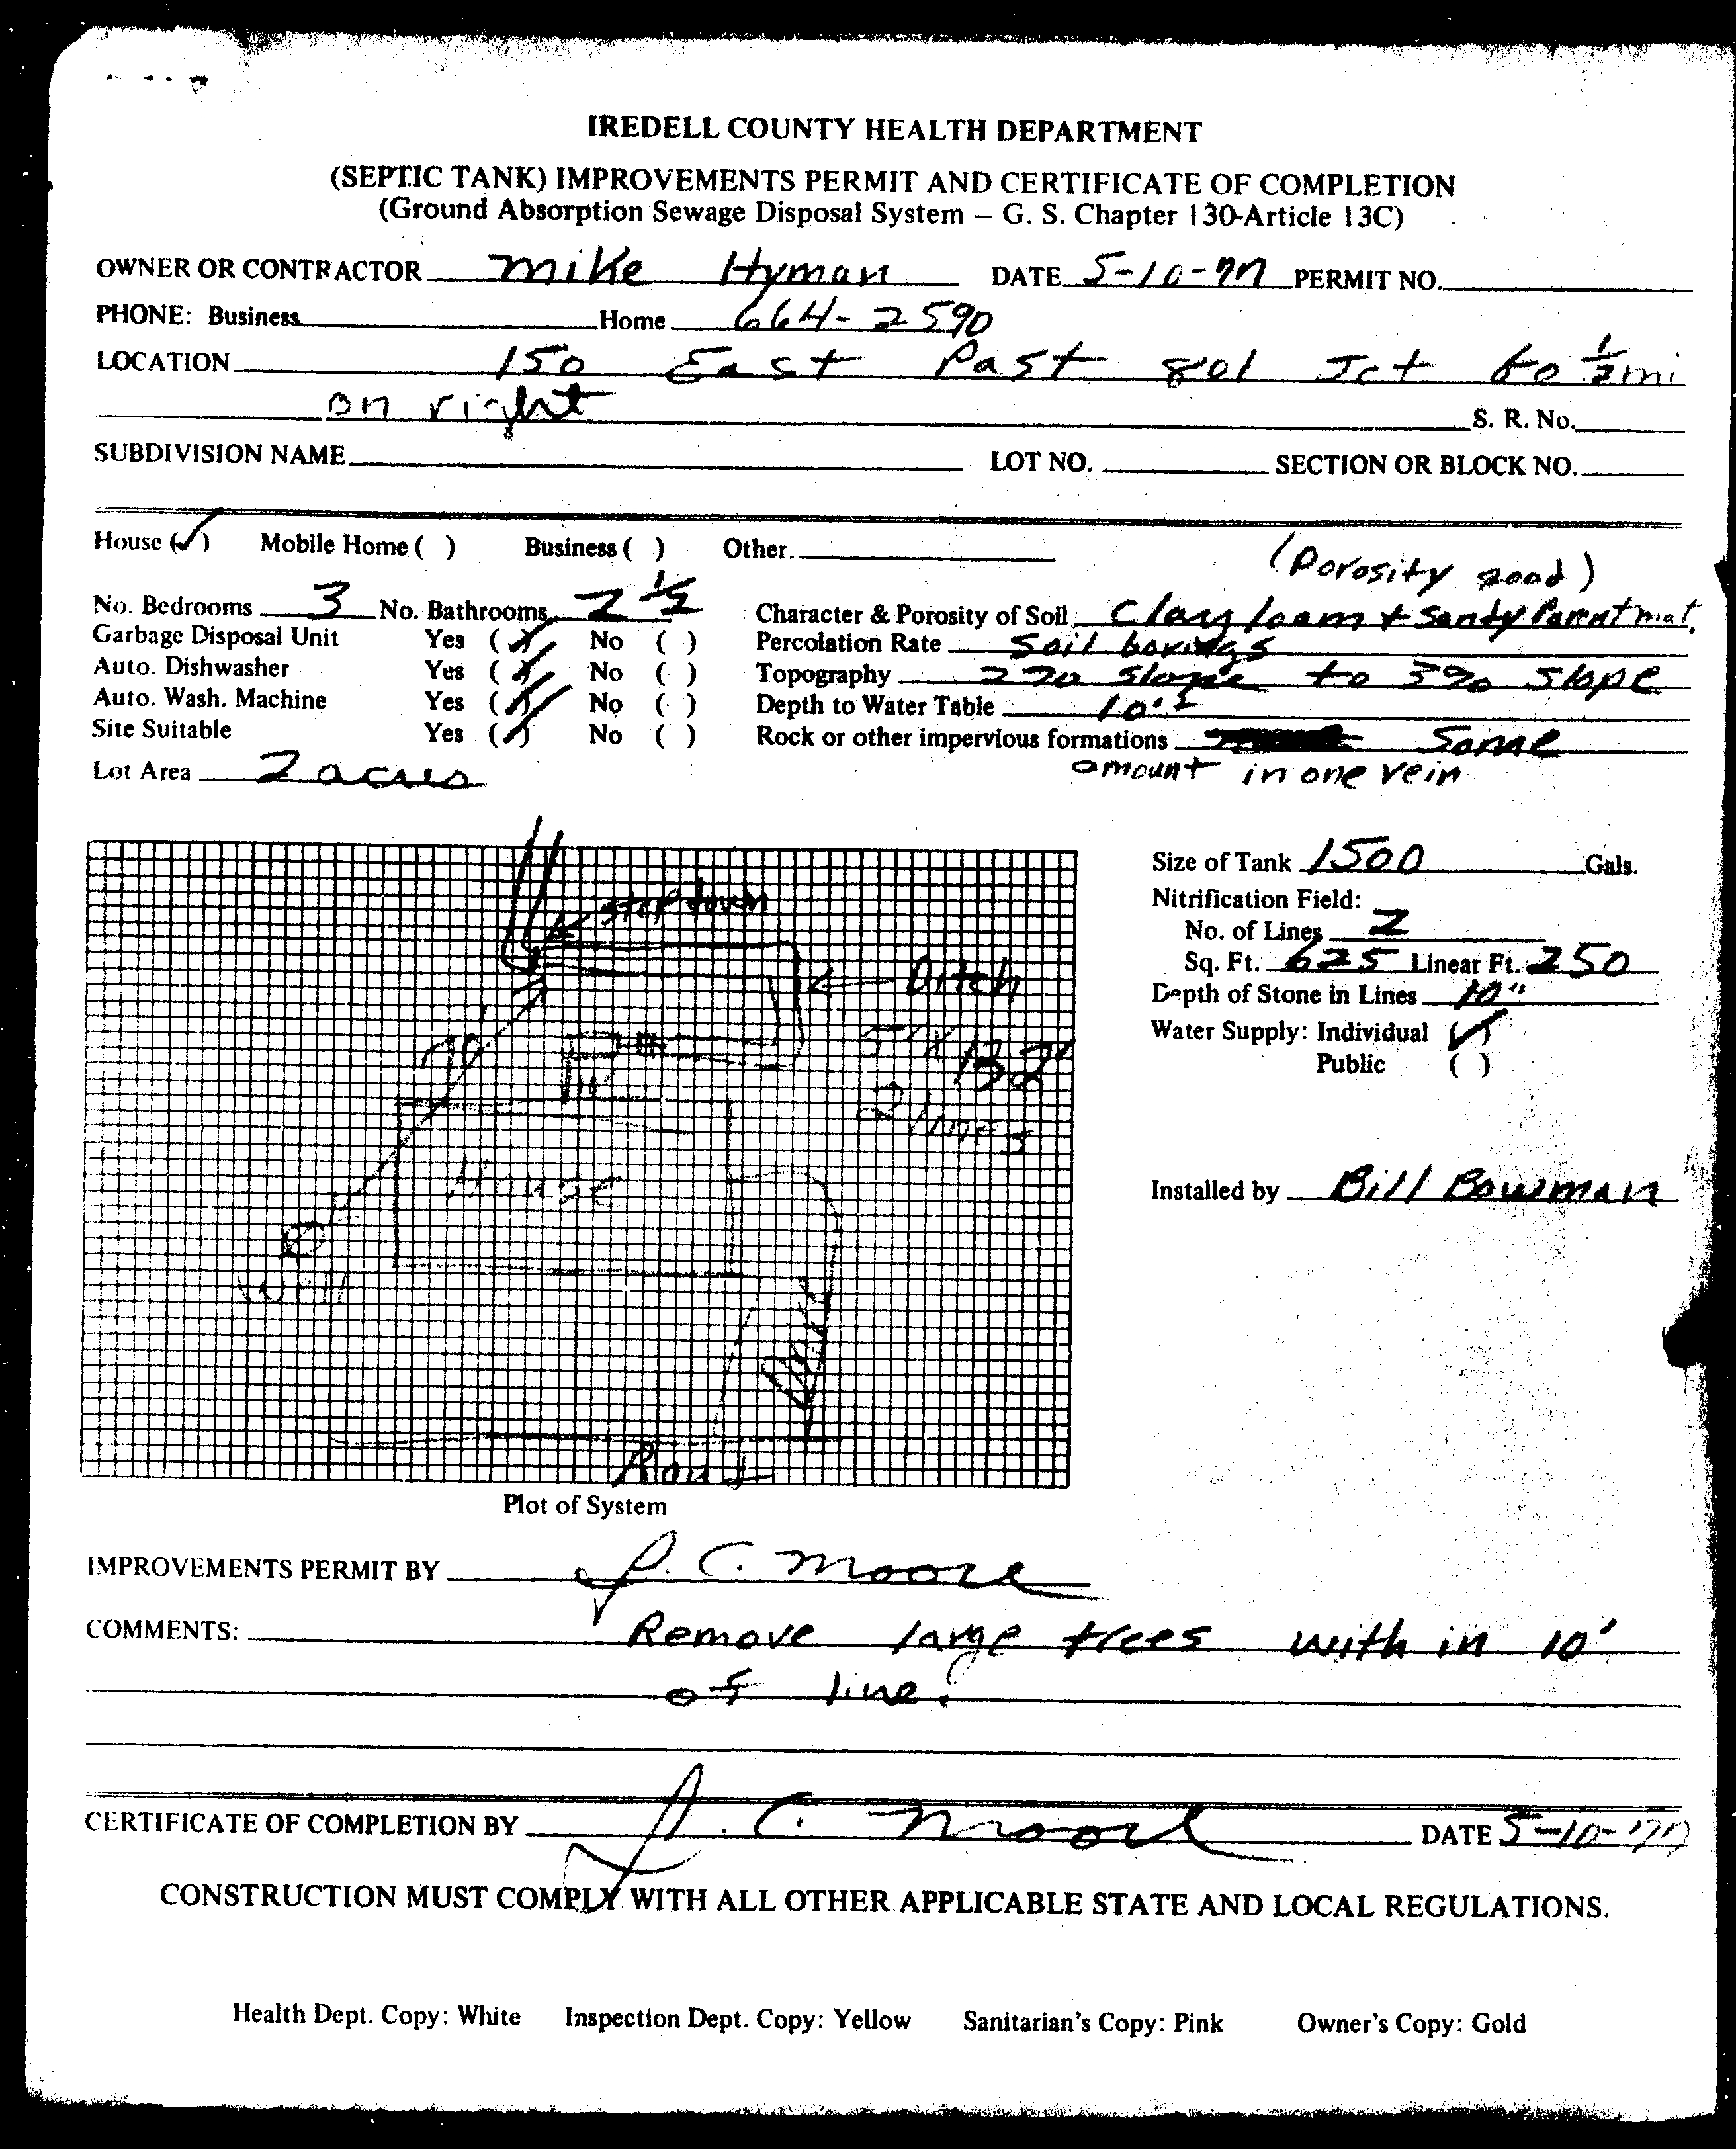 IREDELL COUNTY HEALTH DEPARTMENT
(SEPTIC TANK) IMPROVEMENTS PERMIT AND CERTIFICATE OF COMPLETION
(Ground Absorption Sewage Disposal System — G. S. Chapter 130-Article 13C)
OWNER OR CONTRACTOR Mike Hyman DATE 5-10-77 PERMIT NO.
PHONE: Business Home 664-2590
LOCATION 150 East Past 801 Jct to 1/2 mi
on right S. R. No.
SUBDIVISION NAME LOT NO. SECTION OR BLOCK NO.
House (✓) Mobile Home ( ) Business ( ) Other.
(Porosity good)
No. Bedrooms 3 No. Bathrooms 2 1/2 Character & Porosity of Soil Clay loam + Sandy Parent mat.
Garbage Disposal Unit Yes (✓) No ( ) Percolation Rate Soil borings
Auto. Dishwasher Yes (✓) No ( ) Topography 2% slope to 3% slope
Auto. Wash. Machine Yes (✓) No ( ) Depth to Water Table 10'±
Site Suitable Yes (✓) No ( ) Rock or other impervious formations Some
Lot Area 2 acres amount in one vein
Size of Tank 1500 Gals.
Nitrification Field:
No. of Lines 2
Sq. Ft. 625 Linear Ft. 250
Depth of Stone in Lines 10"
Water Supply: Individual (✓)
Public ( )
Installed by Bill Bowman
step down
Ditch
70'
5' X 132'
2 lines
10'
House
Well
Drive
Road
Plot of System
IMPROVEMENTS PERMIT BY J. C. Moore
COMMENTS: Remove large trees with in 10'
of line.
CERTIFICATE OF COMPLETION BY J. C. Moore DATE 5-10-77
CONSTRUCTION MUST COMPLY WITH ALL OTHER APPLICABLE STATE AND LOCAL REGULATIONS.
Health Dept. Copy: White Inspection Dept. Copy: Yellow Sanitarian's Copy: Pink Owner's Copy: Gold